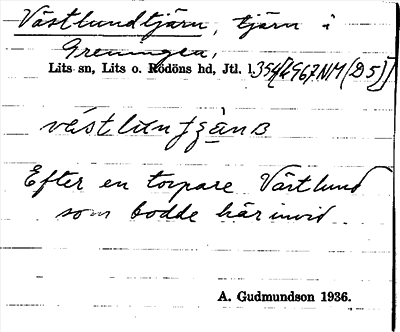 Västlundtjärn, tjärn i
Greningen,
Lits sn, Lits o. Rödöns hd, Jtl. l
Efter en torpare Västlund
som bodde här invid.
A. Gudmundson 1936.